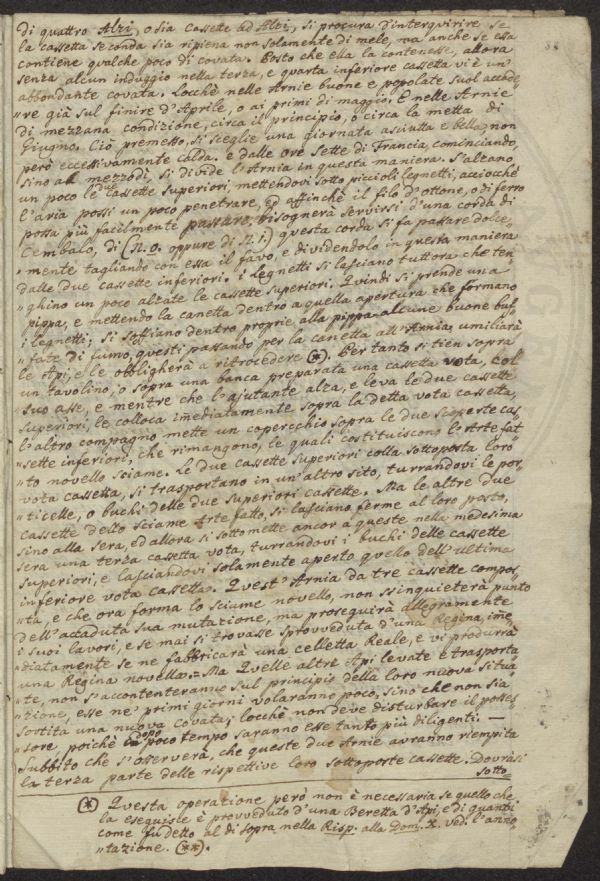 di quattro Alzi, o sia Cassette ad Alzi, si procura d'interqvirire se
la cassetta seconda sia ripiena non solamente di mele, ma anche se essa
contiene qvalche poco di covata. Posto che ella la contenesse, allora
senza alcun induggio nella terza, e qvarta inferiore cassetta vi è un'
abbondante covata. Locchè nelle Arnie buone e popolate suol accade„
„re già sul finire d'Aprile, o ai primi di maggio, E nelle Arnie
di mezzana condizione, circa il principio, o circa la metta di
Giugno. Ciò premesso, si sceglie una giornata asciutta e bella, non
però eccessivamente calda. e dalle ore sette di Francia, cominciando,
sino al mezzodì, si divide l'Arnia in questa maniera. S'alzano
un poco le due cassette superiori, mettendovi sotto piccioli legnetti, acciochè
l'aria possi un poco penetrare, ed affinchè il filo d'ottone, o di ferro
possa più facilmente passare, bisognerà servirsi d'una corda di
Cembalo, di (N. 0. oppure di N. 1.) qvesta corda si fa passare dolce„
„mente tagliando con essa il favo, e dividendolo in qvesta maniera
dalle due cassette inferiori. i Legnetti si lasciano tuttora che ten„
„ghino un poco alzate le cassette superiori. Qvindi si prende una
pippa, e mettendo la canetta dentro a qvella apertura che formano
i legnetti; si soffiano dentro proprie alla pippa alcune buone buf„
„fate di fumo, qvesti passando per la canetta all'Arnia, umiliarà
le Api, e le obbligherà a ritrocedere (*). Per tanto si tien sopra
un tavolino, o sopra una banca preparata una cassetta vota, col
suo asse, e mentre che l'ajutante alza, e leva le due cassette
superiori, le colloca imediatamente sopra la detta vota cassetta,
l'altro compagno mette un coperechio sopra le due scoperte cas„
„sette inferiori, che rimangono, le quali costituiscono lo Arte fat„
„to novello sciame. Le due cassette superiori colla sottoposta loro
vota cassetta, si trasportano in un'altro sito, turrandovi le por„
„ticelle, o buchi delle due superiori cassette. Ma le altre due
cassette dello sciame Arte fatto, si lasciano ferme al loro posto,
sino alla sera, ed allora si sottomette ancor a queste nella medesima
sera una terza cassetta vota, turrandovi i buchi delle cassette
superiori, e lasciandovi solamente aperto qvello dell'ultima
inferiore vota cassetta. Qvest'Arnia da tre cassette compos„
„ta, e che ora forma lo sciame novello, non ssinquieterà punto
dell'accaduta sua mutazione, ma proseguirà allegramente
i suoi lavori, e se mai si trovasse sprovveduta d'una Regina, ime„
„diatamente se ne fabbricarà una celletta Reale, e vi produrrà
una Regina novella. Ma Qvelle altre Api levate e trasporta
te, non s'accontenteranno sul principio della loro nuova situa„
„zione, esse ne' primi giorni volaranno poco, sino che non sia
sortita una nuova covata; locchè non deve disturbare il posses„
„sore, poichè dopo poco tempo saranno esse tanto più diligenti. —
Subbito che s'osserverà, che queste due Arnie avranno riempita
la terza parte delle rispettive loro sottoposte cassette. Dovrassi
sotto„
(*) Qvesta operatione però non è necessaria se quello che
la eseguisce è provveduto d'una Beretta d'Api, e di guanti
come fu detto al di sopra nella Risp. alla Dom. X. ved. l'anno„
„tazione. (**).